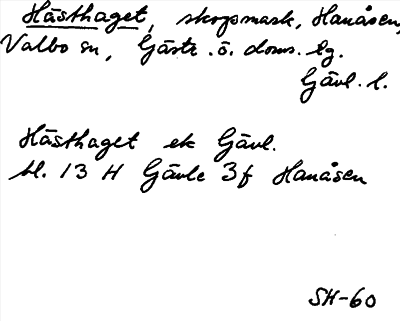 Hästhaget, skogsmark, Hanåsen,
Valbo sn, Gästr. ö. doms. lg.
Gävl. l.
Hästhaget ek Gävl.
bl. 13 H Gävle 3f Hanåsen
SH-60